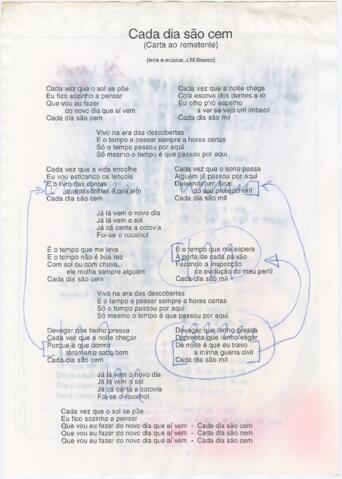 Cada dia são cem
(Carta ao remetente)
(letra e música: J.M.Branco)
Cada vez que o sol se põe
Eu fico sozinho a pensar
Que vou eu fazer
do novo dia que aí vem
Cada dia são cem
Cada vez que a noite chega
Co'a escova dos dentes a rir
Eu olho p'ró espelho
a ver se vejo um imbecil
Cada dia são mil
Vivo na era das descobertas
E o tempo a passar sempre a horas certas
Só o tempo passou por aqui
Só mesmo o tempo é que passou por aqui
Cada vez que a vida encolhe
Eu vou esticando os lençois
E o livro das contas
quantas folhas é que tem
Cada dia são cem
Cada vez que o sono passa
Alguém já passou por aqui
Deixando um sinal
do seu protesto viril
Cada dia são mil
Já lá vem o novo dia
Já lá vem o sol
Já cá canta a cotovia
Foi-se o rouxinol
É o tempo que me leva
E o tempo não é boa rez
Com sol ou com chuva,
ele molha sempre alguém
Cada dia são cem
É o tempo que me espera
À porta de cada paixão
Fazendo a inspecção
da evolução do meu perfil
Cada dia são mil
Vivo na era das descobertas
E o tempo a passar sempre a horas certas
Só o tempo passou por aqui
Só mesmo o tempo é que passou por aqui
Devagar que tenho pressa
Cada vez que a noite chegar
Porque é que dormir
sabe bem
Cada dia são cem
Devagar que tenho pressa
Depressa que tenho vagar
De noite é que eu travo
a minha guerra civil
Cada dia são mil
Já lá vem o novo dia
Já lá vem o sol
Já cá canta a cotovia
Foi-se o rouxinol
Cada vez que o sol se põe
Eu fico sozinho a pensar
Que vou eu fazer do novo dia que aí vem - Cada dia são cem
Que vou eu fazer do novo dia que aí vem - Cada dia são cem
Que vou eu fazer do novo dia que aí vem - Cada dia são cem